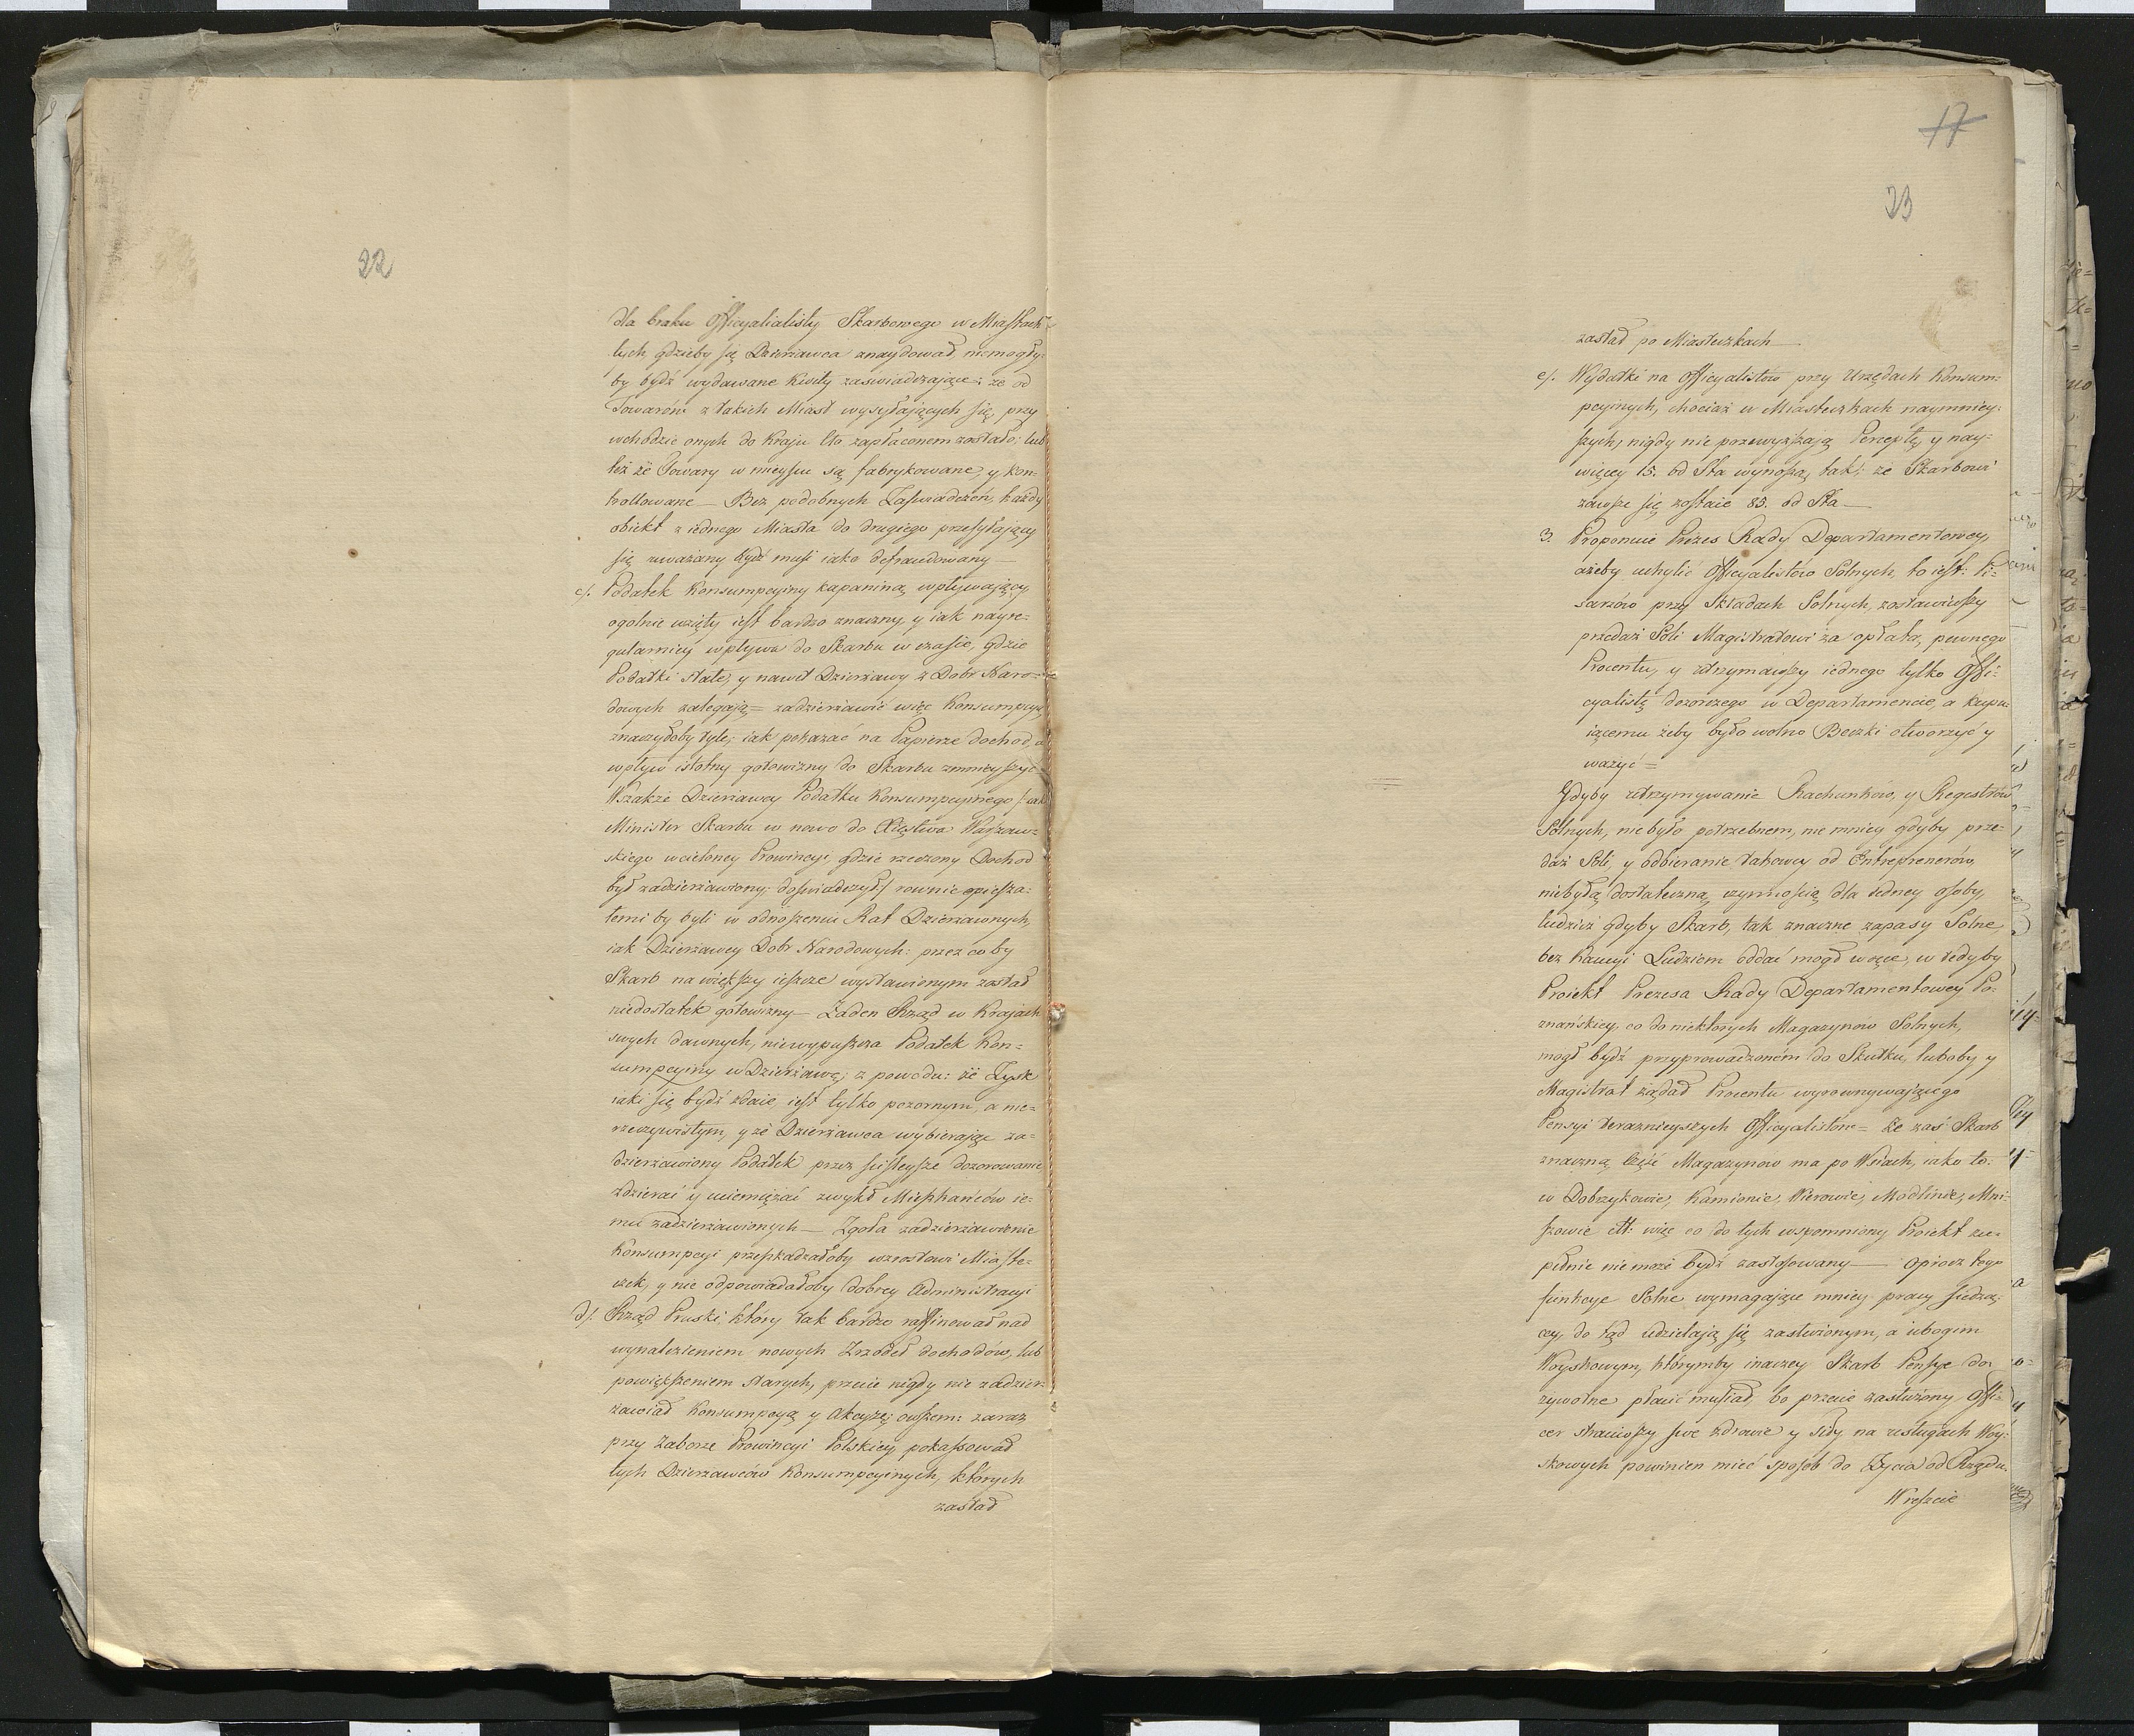 22
dla braku Officyalialisty Skarbowego w Miastach
tych gdzieby się Dzierzawca znaydował, niemogły
by bydź wydawane Kwity zaswiadczaiące: że od
Towarów z takich Miast wysyłaiących się, przy
wchodzie onych do Kraiu Cło zapłaconem zostało; lub
też że Towary w mieyscu są fabrykowane, y kon-
trollowane — Bez podobnych Zaświadczeń, każdy
obiekt z iednego Miasta do drugiego przesyłaiący
się uważany bydź musi iako defraudowany —
c/. Podatek Konsumpcyiny kapaniną wpływaiący
ogolnie wzięty iest bardzo znaczny, y iak nayre-
gularniey wpływa do Skarbu w czasie, gdzie
Podatki stałe, y nawet Dzierżawy z Dobr Naro-
dowych zalegaią = zadzierżawić więc Konsumpcyą
znaczyłoby tyle, iak pokazać na Papierze dochod, a
wpływ istotny gotowizny do Skarbu zmnieyszyć
Wszakże Dzierżawcy Podatku Konsumpcyinego /: iak
Minister Skarbu w nowo do Xięstwa Warszaw-
skiego wcieloney Prowincyi, gdzie rzeczony Dochod
był zadzierżawiony doświadczył/ rownie opiesza-
łemi by byli w odnoszeniu Rat Dzierżawnych,
iak Dzierżawcy Dobr Narodowych: przez co by
Skarb na większy ieszcze wystawionym został
niedostatek gotowizny — Żaden Rząd w Kraiach
swych dawnych, niewypuszcza Podatek Kon-
sumpcyiny w Dzierżawę; z powodu: że Zysk
iaki się bydź zdaie, iest tylko pozornym, a nie-
rzeczywistym, y że Dzierżawca wybieraiąc za-
dzierżawiony Podatek przez ściśleysze dozorowanie
zdzierać y uciemiężać zwykł Mieszkańców ie-
mu zadzierżawionych — Zgoła zadzierżawienie
Konsumpcyi przeszkadzałoby wzrostowi Miaste-
czek, y nie odpowiadałoby dobrey Administracyi
d/. Rząd Pruski, który tak bardzo raffinował nad
wynalezieniem nowych Zrzodeł dochodów, lub
powiększeniem starych, przecie nigdy nie zadzier-
żawiał Konsumpcyą y Akcyzę; owszem: zaraz
przy Zaborze Prowincyi Polskiey pokassował
tych Dzierżawców Konsumpcyinych, których
zastał
17
23
zastał po Miasteczkach —
e/. Wydatki na Officyalistow przy Urzędach Konsum-
pcyinych, chociaż w Miasteczkach naymniey-
szych, nigdy nie przewyższaią Perceptę, y nay-
więcey 15. od Sta wynoszą, tak: że Skarbowi
zawsze się zostaie 85. od Sta —
3. Proponuie Prezes Rady Departamentowey,
ażeby uchylić Officyalistow Solnych, to iest: Pi-
sarzów przy Składach Solnych, zostawiwszy
przedaż Soli Magistratowi za opłatą, pewnego
Procentu, y utrzymawszy iednego tylko Offi-
cyalistę dozorczego w Departamencie, a kupu-
iącemu żeby było wolno Beczki otworzyć y
ważyć =
Gdyby utrzymywanie Rachunków, y Regestrów
Solnych, nie było potrzebnem, nie mniey gdyby prze-
daż Soli, y odbieranie takowey od Entreprenerów,
niebyłą dostateczną czynnością dla iedney osoby,
tudzież gdyby Skarb, tak znaczne zapasy Solne,
bez Kaucyi Ludziom oddać mogł w ręce, w tedyby
Proiekt Prezesa Rady Departamentowey Po-
znańskiey, co do niektórych Magazynow Solnych,
mogł bydź przyprowadzonem do Skutku, luboby y
Magistrat żądał Procentu wyrownywaiącego
Pensyi teraznieyszych Officyalistow = Że zaś Skarb
znaczną część Magazynow ma po Wsiach, iako to:
w Dobrzykowie, Kamionie, Nierowie, Modlinie, Mni-
szowie ett: więc co do tych wspomniony Proiekt zu-
pełnie nie może bydź zastosowany — oprocz tego
funkcye Solne wymagaiące mniey pracy siedzą-
cey, do tąd udzielaią się zasłużonym, a ubogim
Woyskowym, którymby inaczey Skarb Pensye do-
żywotne płacić musiał, bo przecie zasłużony Offi-
cer straciwszy swe zdrowie y siły na usługach Woy-
skowych powinien mieć sposob do Życia od Rządu.
Wreszcie